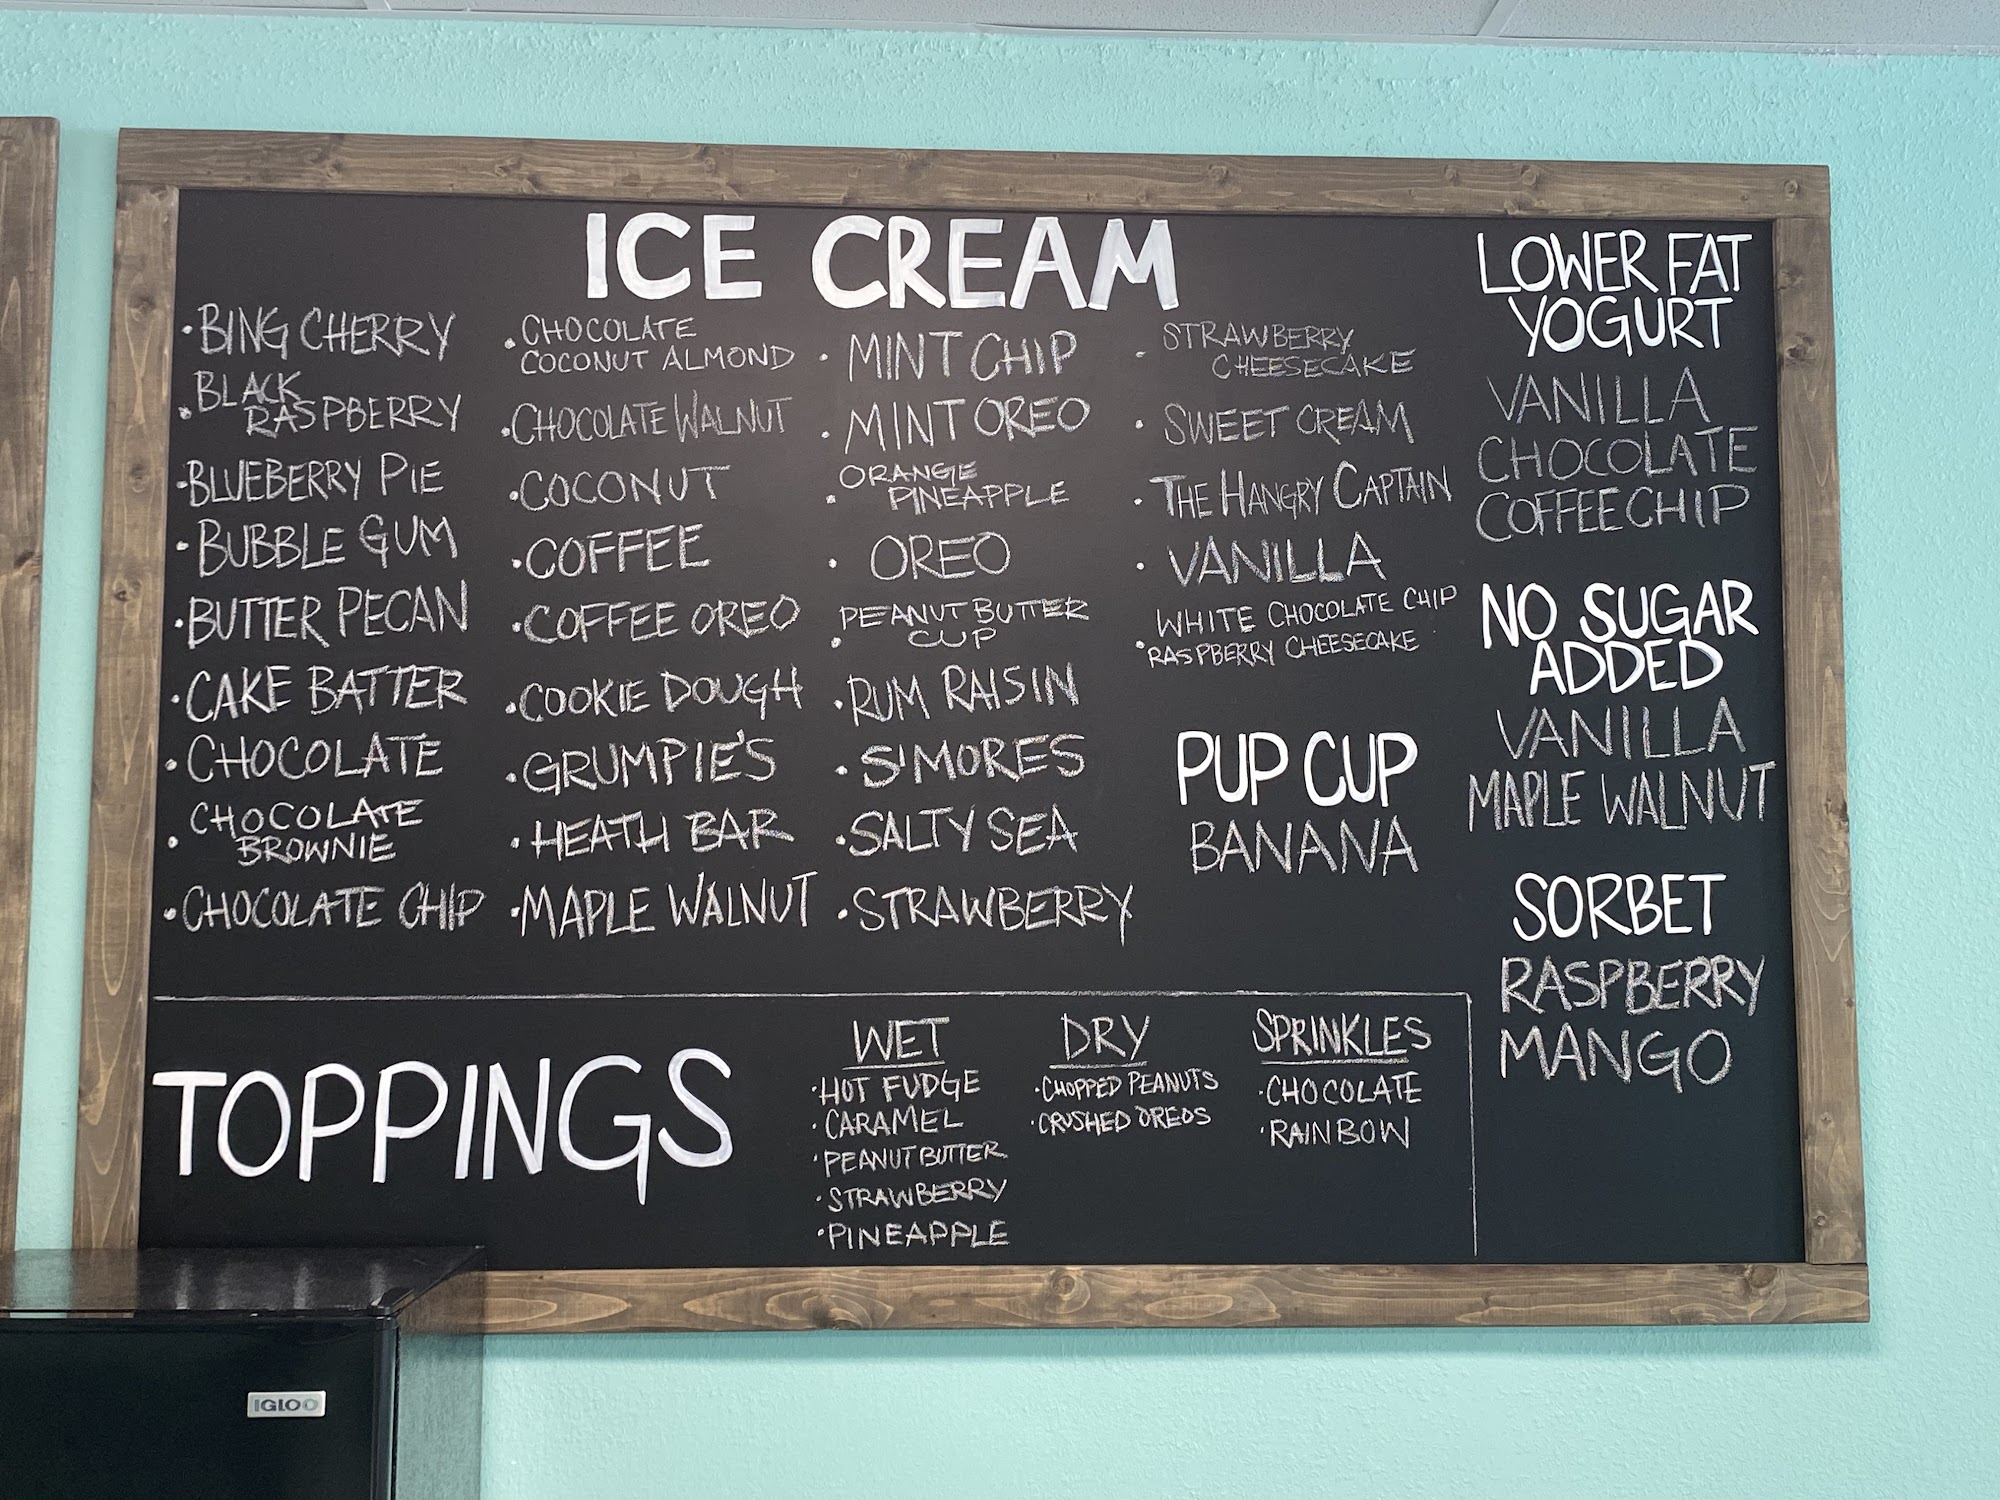 ICE CREAM
• BING CHERRY
• BLACK
RASPBERRY
• BLUEBERRY PIE
• BUBBLE GUM
• BUTTER PECAN
• CAKE BATTER
• CHOCOLATE
• CHOCOLATE
BROWNIE
• CHOCOLATE CHIP
• CHOCOLATE
COCONUT ALMOND
• CHOCOLATE WALNUT
• COCONUT
• COFFEE
• COFFEE OREO
• COOKIE DOUGH
• GRUMPIE'S
• HEATH BAR
• MAPLE WALNUT
• MINT CHIP
• MINT OREO
• ORANGE
PINEAPPLE
• OREO
• PEANUT BUTTER
CUP
• RUM RAISIN
• S'MORES
• SALTY SEA
• STRAWBERRY
• STRAWBERRY
CHEESECAKE
• SWEET CREAM
• THE HANGRY CAPTAIN
• VANILLA
• WHITE CHOCOLATE CHIP
RASPBERRY CHEESECAKE
PUP CUP
BANANA
LOWER FAT
YOGURT
VANILLA
CHOCOLATE
COFFEE CHIP
NO SUGAR
ADDED
VANILLA
MAPLE WALNUT
SORBET
RASPBERRY
MANGO
TOPPINGS
WET
• HOT FUDGE
• CARAMEL
• PEANUT BUTTER
• STRAWBERRY
• PINEAPPLE
DRY
• CHOPPED PEANUTS
• CRUSHED OREOS
SPRINKLES
• CHOCOLATE
• RAINBOW
IGLOO